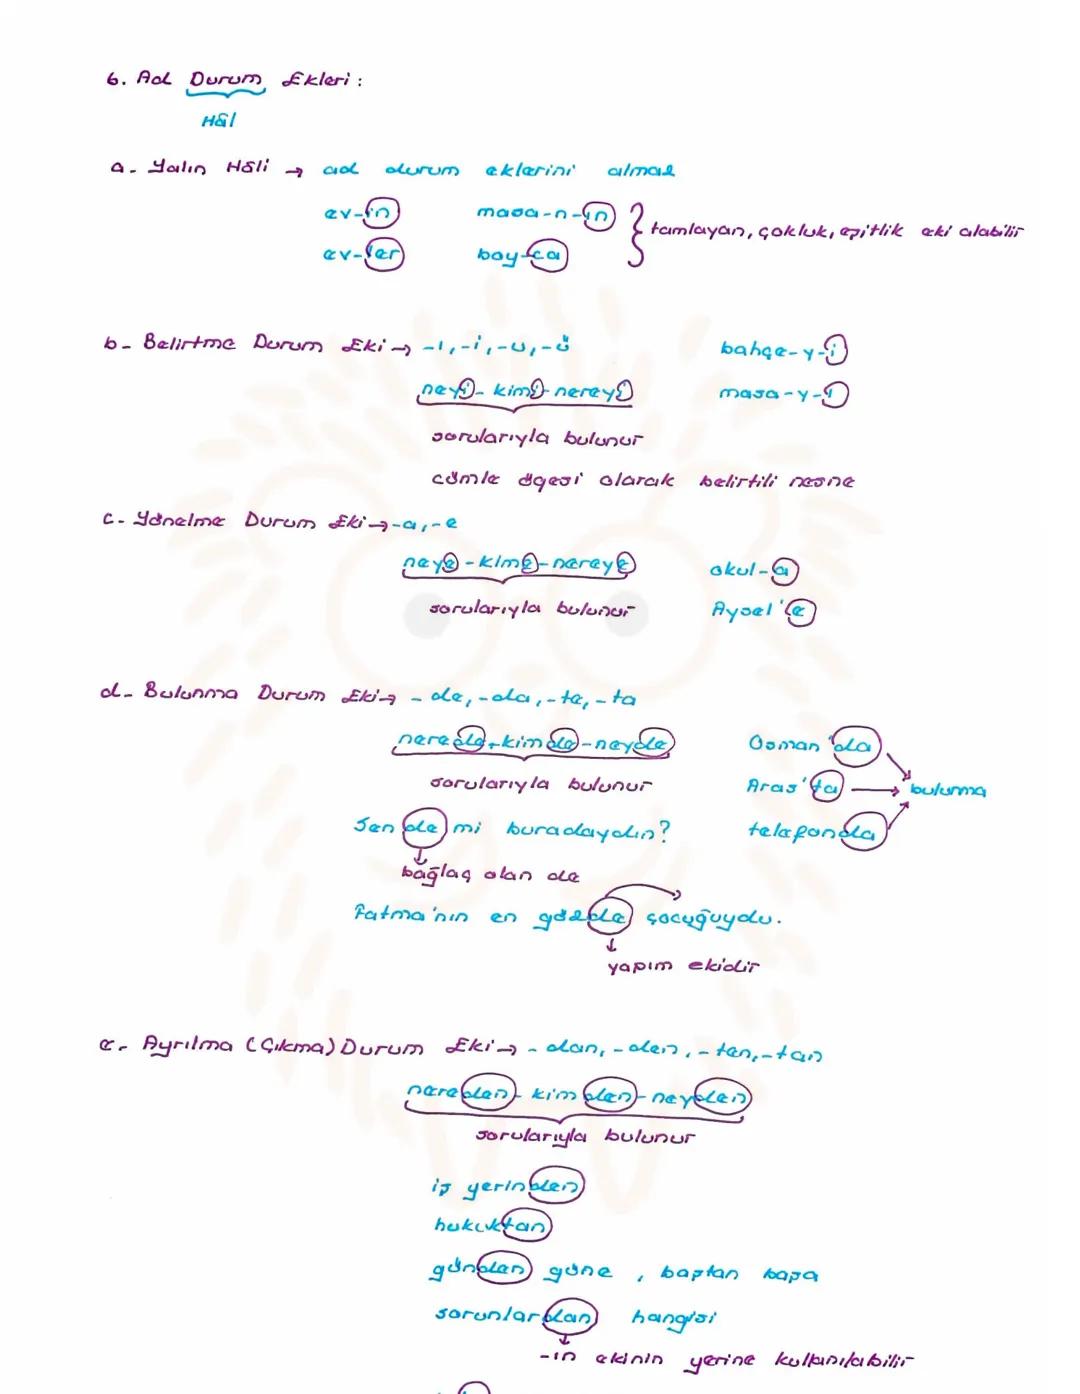 6. Ad Durum Ekleri :
Hâl
a- Yalın Hâli → ad durum eklerini almaz
ev-in masa-n-ın
tamlayan, çokluk, eşitlik eki alabilir
ev-ler boy-ca
b- Belirtme Durum Eki → -ı, -i, -u, -ü bahçe-y-i
neyi - kimi - nereyi masa-y-ı
sorularıyla bulunur
cümle ögesi olarak belirtili nesne
c- Yönelme Durum Eki → -a, -e
neye - kime - nereye okul-a
sorularıyla bulunur Aysel'e
d- Bulunma Durum Eki → - de, -da, -te, -ta
nerede - kimde - neyde Osman'da
sorularıyla bulunur Aras'ta → bulunma
Sen de mi buradaydın? telefonda
bağlaç olan de
Fatma'nın en gözde çocuğuydu.
yapım ekidir
e- Ayrılma (Çıkma) Durum Eki → - dan, -den, -ten, -tan
nereden - kimden - neyden
sorularıyla bulunur
iş yerinden
hukuktan
günden güne , baştan başa
sorunlardan hangisi
-ın ekinin yerine kullanılabilir